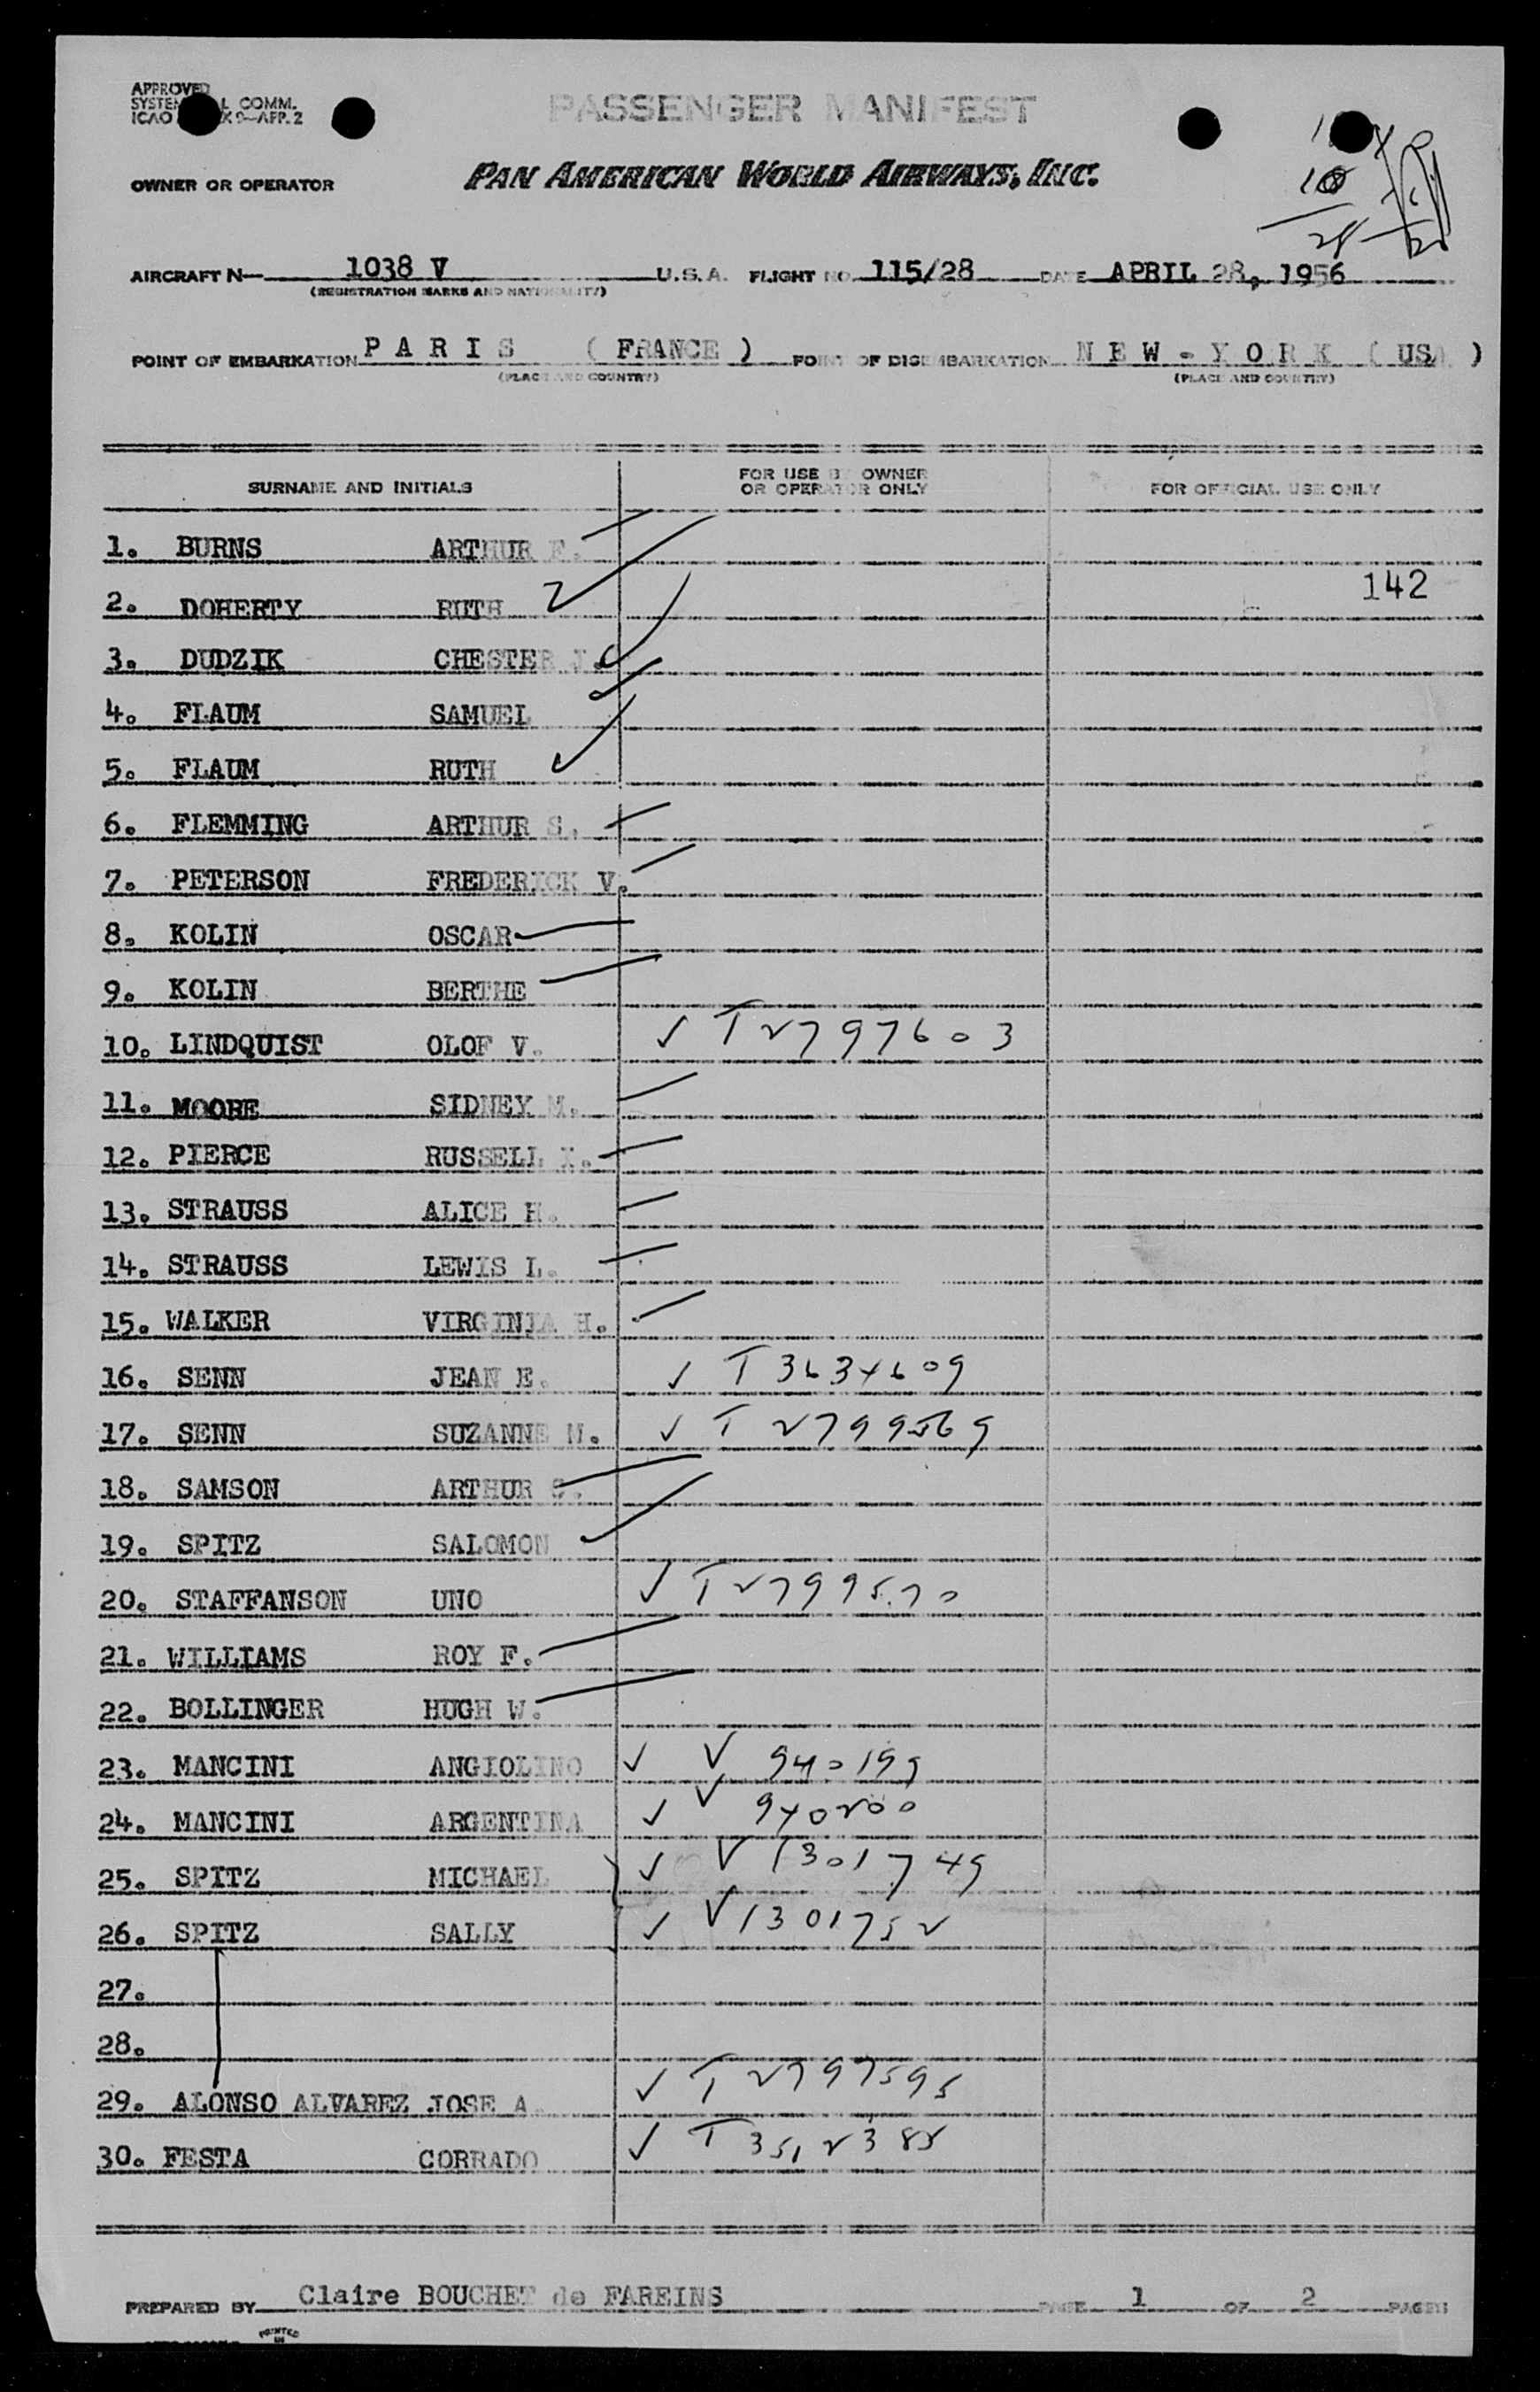 APPROVED
SYSTEM L COMM.
ICAO X 9—APP. 2
PASSENGER MANIFEST
OWNER OR OPERATOR PAN AMERICAN WORLD AIRWAYS, INC.
10
28
AIRCRAFT N— 1038 V U.S.A. FLIGHT NO. 115/28 DATE APRIL 28, 1956
(REGISTRATION MARKS AND NATIONALITY)
POINT OF EMBARKATION P A R I S ( FRANCE ) POINT OF DISEMBARKATION N E W - Y O R K ( USA )
(PLACE AND COUNTRY) (PLACE AND COUNTRY)
SURNAME AND INITIALS FOR USE BY OWNER OR OPERATOR ONLY FOR OFFICIAL USE ONLY
1. BURNS ARTHUR F.
142
2. DOHERTY RUTH
3. DUDZIK CHESTER J.
4. FLAUM SAMUEL
5. FLAUM RUTH
6. FLEMMING ARTHUR S.
7. PETERSON FREDERICK V.
8. KOLIN OSCAR
9. KOLIN BERTHE
10. LINDQUIST OLOF V. ✓ T2797603
11. MOORE SIDNEY M.
12. PIERCE RUSSELL K.
13. STRAUSS ALICE H.
14. STRAUSS LEWIS L.
15. WALKER VIRGINIA H.
16. SENN JEAN E. ✓ T3634609
17. SENN SUZANNE M. ✓ T2799569
18. SAMSON ARTHUR S.
19. SPITZ SALOMON ✓
20. STAFFANSON UNO ✓ T2799570
21. WILLIAMS ROY F.
22. BOLLINGER HUGH W.
23. MANCINI ANGIOLINO ✓ V 940199
24. MANCINI ARGENTINA ✓ V 940200
25. SPITZ MICHAEL ✓ V1301749
26. SPITZ SALLY ✓ V1301752
27.
28.
29. ALONSO ALVAREZ JOSE A. ✓ T2797595
30. FESTA CORRADO ✓ T3512388
PREPARED BY Claire BOUCHET de FAREINS PAGE 1 OF 2 PAGES
PRINTED
IN